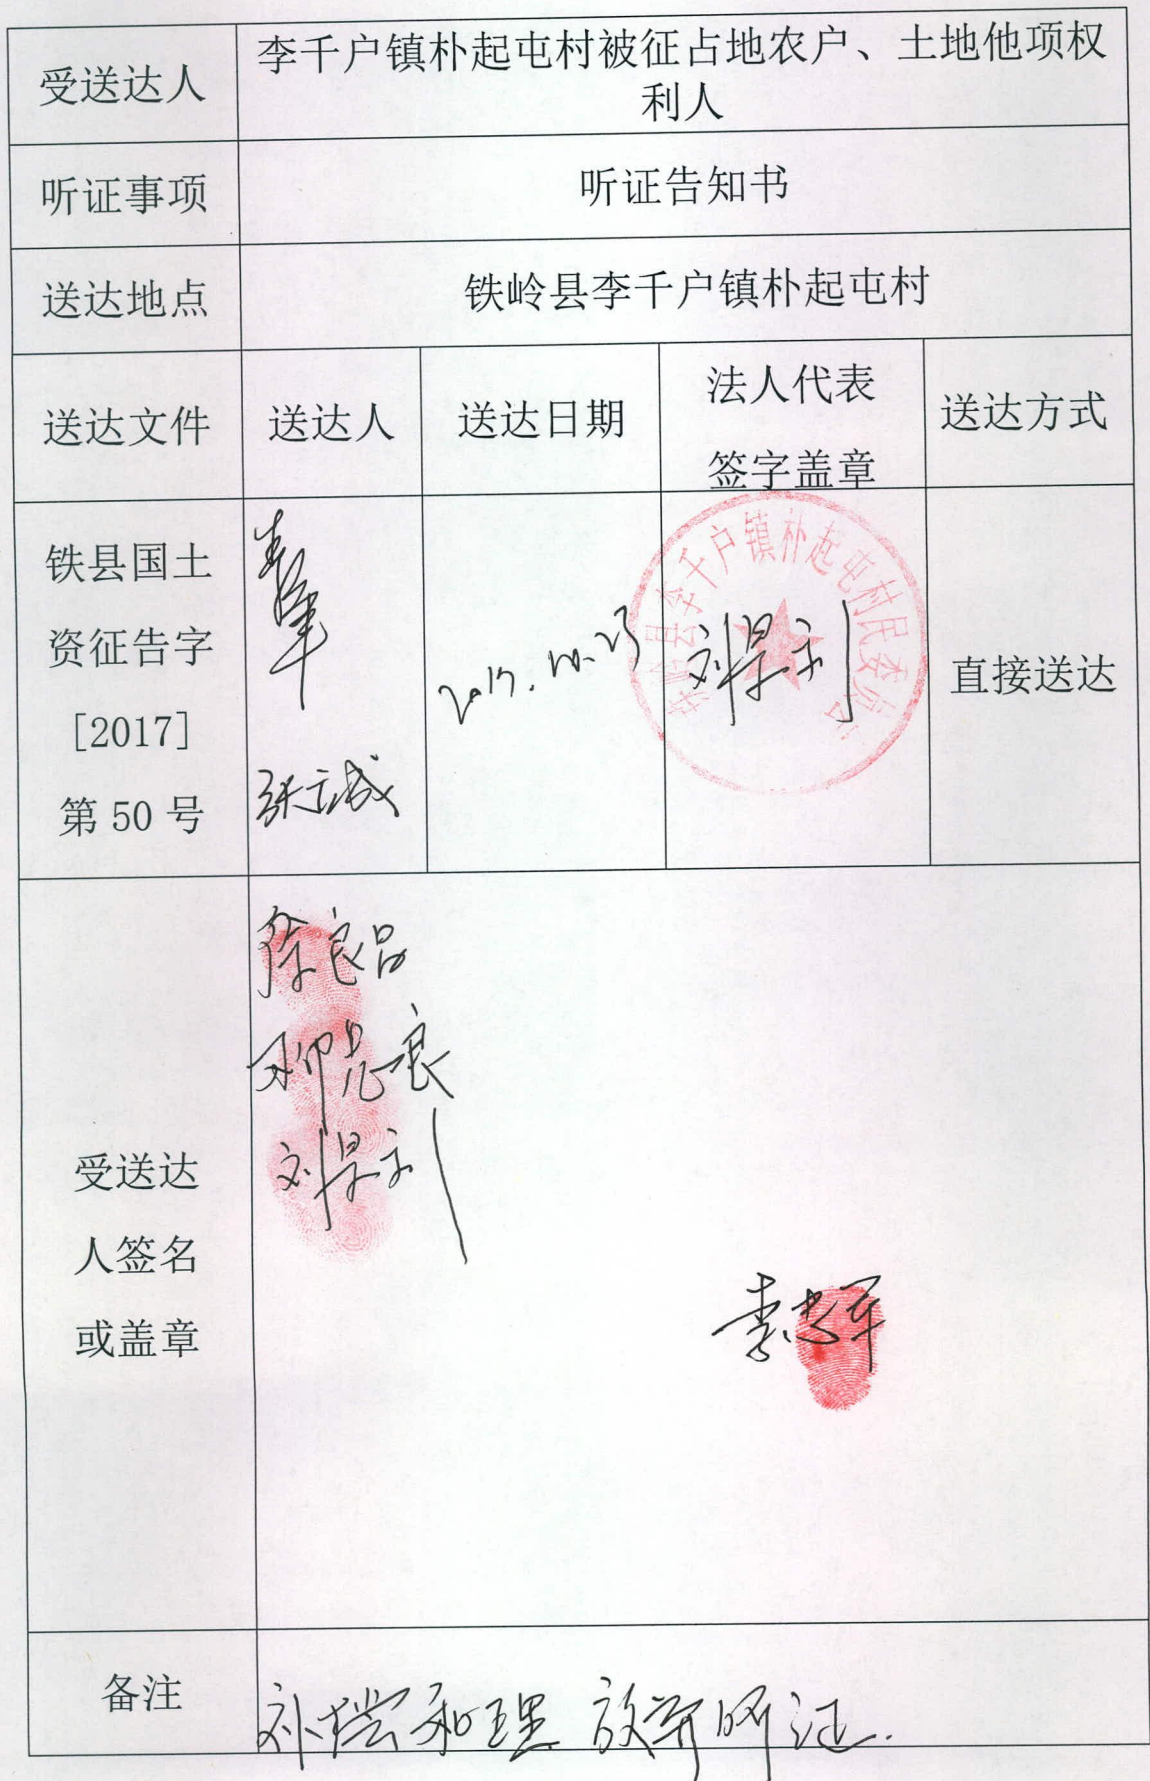 受送达人
李千户镇朴起屯村被征占地农户、土地他项权
利人
听证事项
听证告知书
送达地点
铁岭县李千户镇朴起屯村
送达文件
送达人
送达日期
法人代表
签字盖章
送达方式
铁县国土
资征告字
[2017]
第 50 号
张立成
2017.10.23
铁岭县李千户镇朴起屯村民委员会
刘景利
直接送达
受送达
人签名
或盖章
徐良品
柳忠良
刘景利
李忠军
备注
补偿和理 放弃听证.